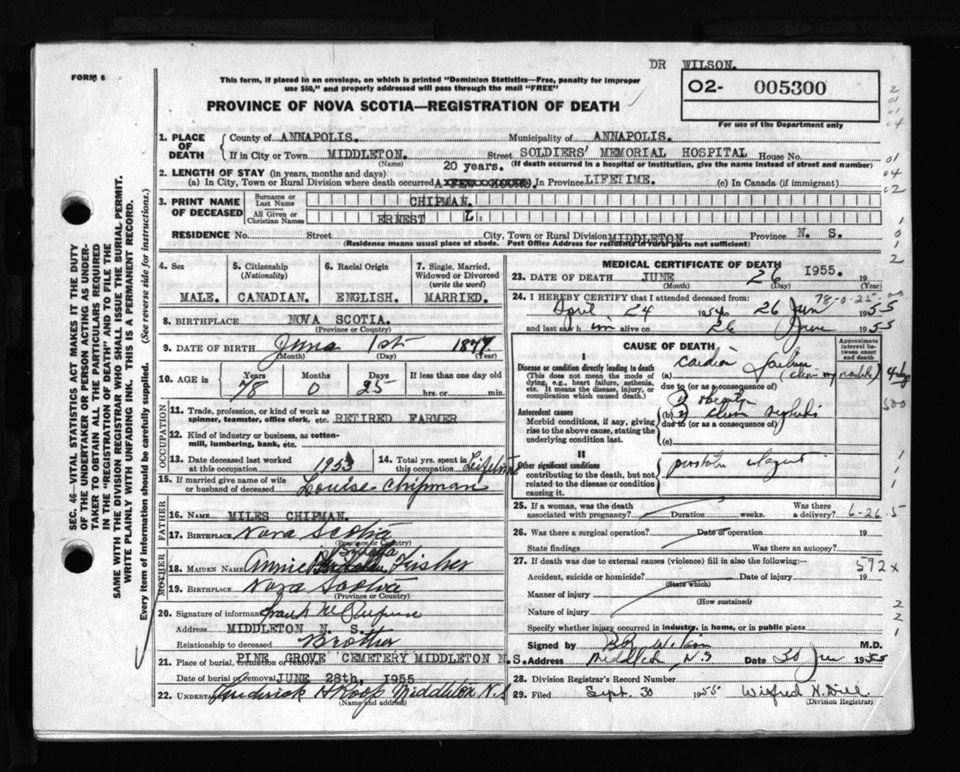 DR WILSON.
FORM 6
This form, if placed in an envelope, on which is printed "Dominion Statistics—Free, penalty for improper
use $50," and properly addressed will pass through the mail "FREE"
O2- 005300
For use of the Department only
PROVINCE OF NOVA SCOTIA—REGISTRATION OF DEATH
SEC. 46—VITAL STATISTICS ACT MAKES IT THE DUTY
OF THE UNDERTAKER OR PERSON ACTING AS UNDER-
TAKER TO OBTAIN ALL THE PARTICULARS REQUIRED
IN THE "REGISTRATION OF DEATH" AND TO FILE THE
SAME WITH THE DIVISION REGISTRAR WHO SHALL ISSUE THE BURIAL PERMIT.
WRITE PLAINLY WITH UNFADING INK. THIS IS A PERMANENT RECORD.
Every item of information should be carefully supplied. (See reverse side for instructions.)
1. PLACE OF DEATH County of ANNAPOLIS. Municipality of ANNAPOLIS.
If in City or Town MIDDLETON. Street SOLDIERS' MEMORIAL HOSPITAL House No.
(Name) (If death occurred in a hospital or institution, give the name instead of street and number)
2. LENGTH OF STAY (in years, months and days) 20 years.
(a) In City, Town or Rural Division where death occurred In Province LIFETIME. (c) In Canada (if immigrant)
3. PRINT NAME OF DECEASED Surname or Last Name CHIPMAN.
All Given or Christian Names ERNEST L.
RESIDENCE No. Street City, Town or Rural Division MIDDLETON Province N. S.
(Residence means usual place of abode. Post Office Address for residents in rural parts not sufficient)
4. Sex MALE.
5. Citizenship (Nationality) CANADIAN.
6. Racial Origin ENGLISH.
7. Single, Married, Widowed or Divorced (write the word) MARRIED.
8. BIRTHPLACE NOVA SCOTIA.
(Province or Country)
9. DATE OF BIRTH June 1st 1877
(Month) (Day) (Year)
10. AGE in Years Months Days If less than one day old
78 0 25 hrs. or min.
OCCUPATION
11. Trade, profession, or kind of work as
spinner, teamster, office clerk, etc. RETIRED FARMER
12. Kind of industry or business, as cotton-
mill, lumbering, bank, etc.
13. Date deceased last worked
at this occupation 1953
14. Total yrs. spent in
this occupation Lifetime
15. If married give name of wife
or husband of deceased Louise Chipman
FATHER
16. NAME MILES CHIPMAN.
17. BIRTHPLACE Nova Scotia
(Province or Country)
MOTHER
18. MAIDEN NAME Annie Fisher
19. BIRTHPLACE Nova Scotia
(Province or Country)
20. Signature of informant
Address MIDDLETON N. S.
Relationship to deceased Brother
21. Place of burial, cremation or removal PINE GROVE CEMETERY MIDDLETON N.S.
Date of burial or removal JUNE 28th, 1955
22. UNDERTAKER Middleton N.S
(Name and address)
MEDICAL CERTIFICATE OF DEATH
23. DATE OF DEATH JUNE 26 1955. 19
(Month) (Day) (Year)
78-0-25
24. I HEREBY CERTIFY that I attended deceased from:
April 24 1954 to 26 Jun 1955
and last saw him alive on 26 June 1955
CAUSE OF DEATH
Approximate interval between onset and death
I
Disease or condition directly leading to death
(This does not mean the mode of
dying, e.g., heart failure, asthenia,
etc. It means the disease, injury, or
complication which caused death.)
(a) Cardiac failure
due to (or as a consequence of)
Antecedent causes
Morbid conditions, if any, giving
rise to the above cause, stating the
underlying condition last.
(b)
due to (or as a consequence of)
(c)
II
Other significant conditions
contributing to the death, but not
related to the disease or condition
causing it.
25. If a woman, was the death
associated with pregnancy? Duration weeks. Was there a delivery?
6-26-5
26. Was there a surgical operation? Date of operation
State findings Was there an autopsy?
27. If death was due to external causes (violence) fill in also the following:— 592x
Accident, suicide or homicide? Date of injury 19
(State which)
Manner of injury
(How sustained)
Nature of injury
Specify whether injury occurred in industry, in home, or in public place
Signed by Wilson M.D.
Address Middleton, N.S Date 30 Jun 1955
28. Division Registrar's Record Number
29. Filed Sept. 30 1955 Wilfred N. Dill.
(Division Registrar)